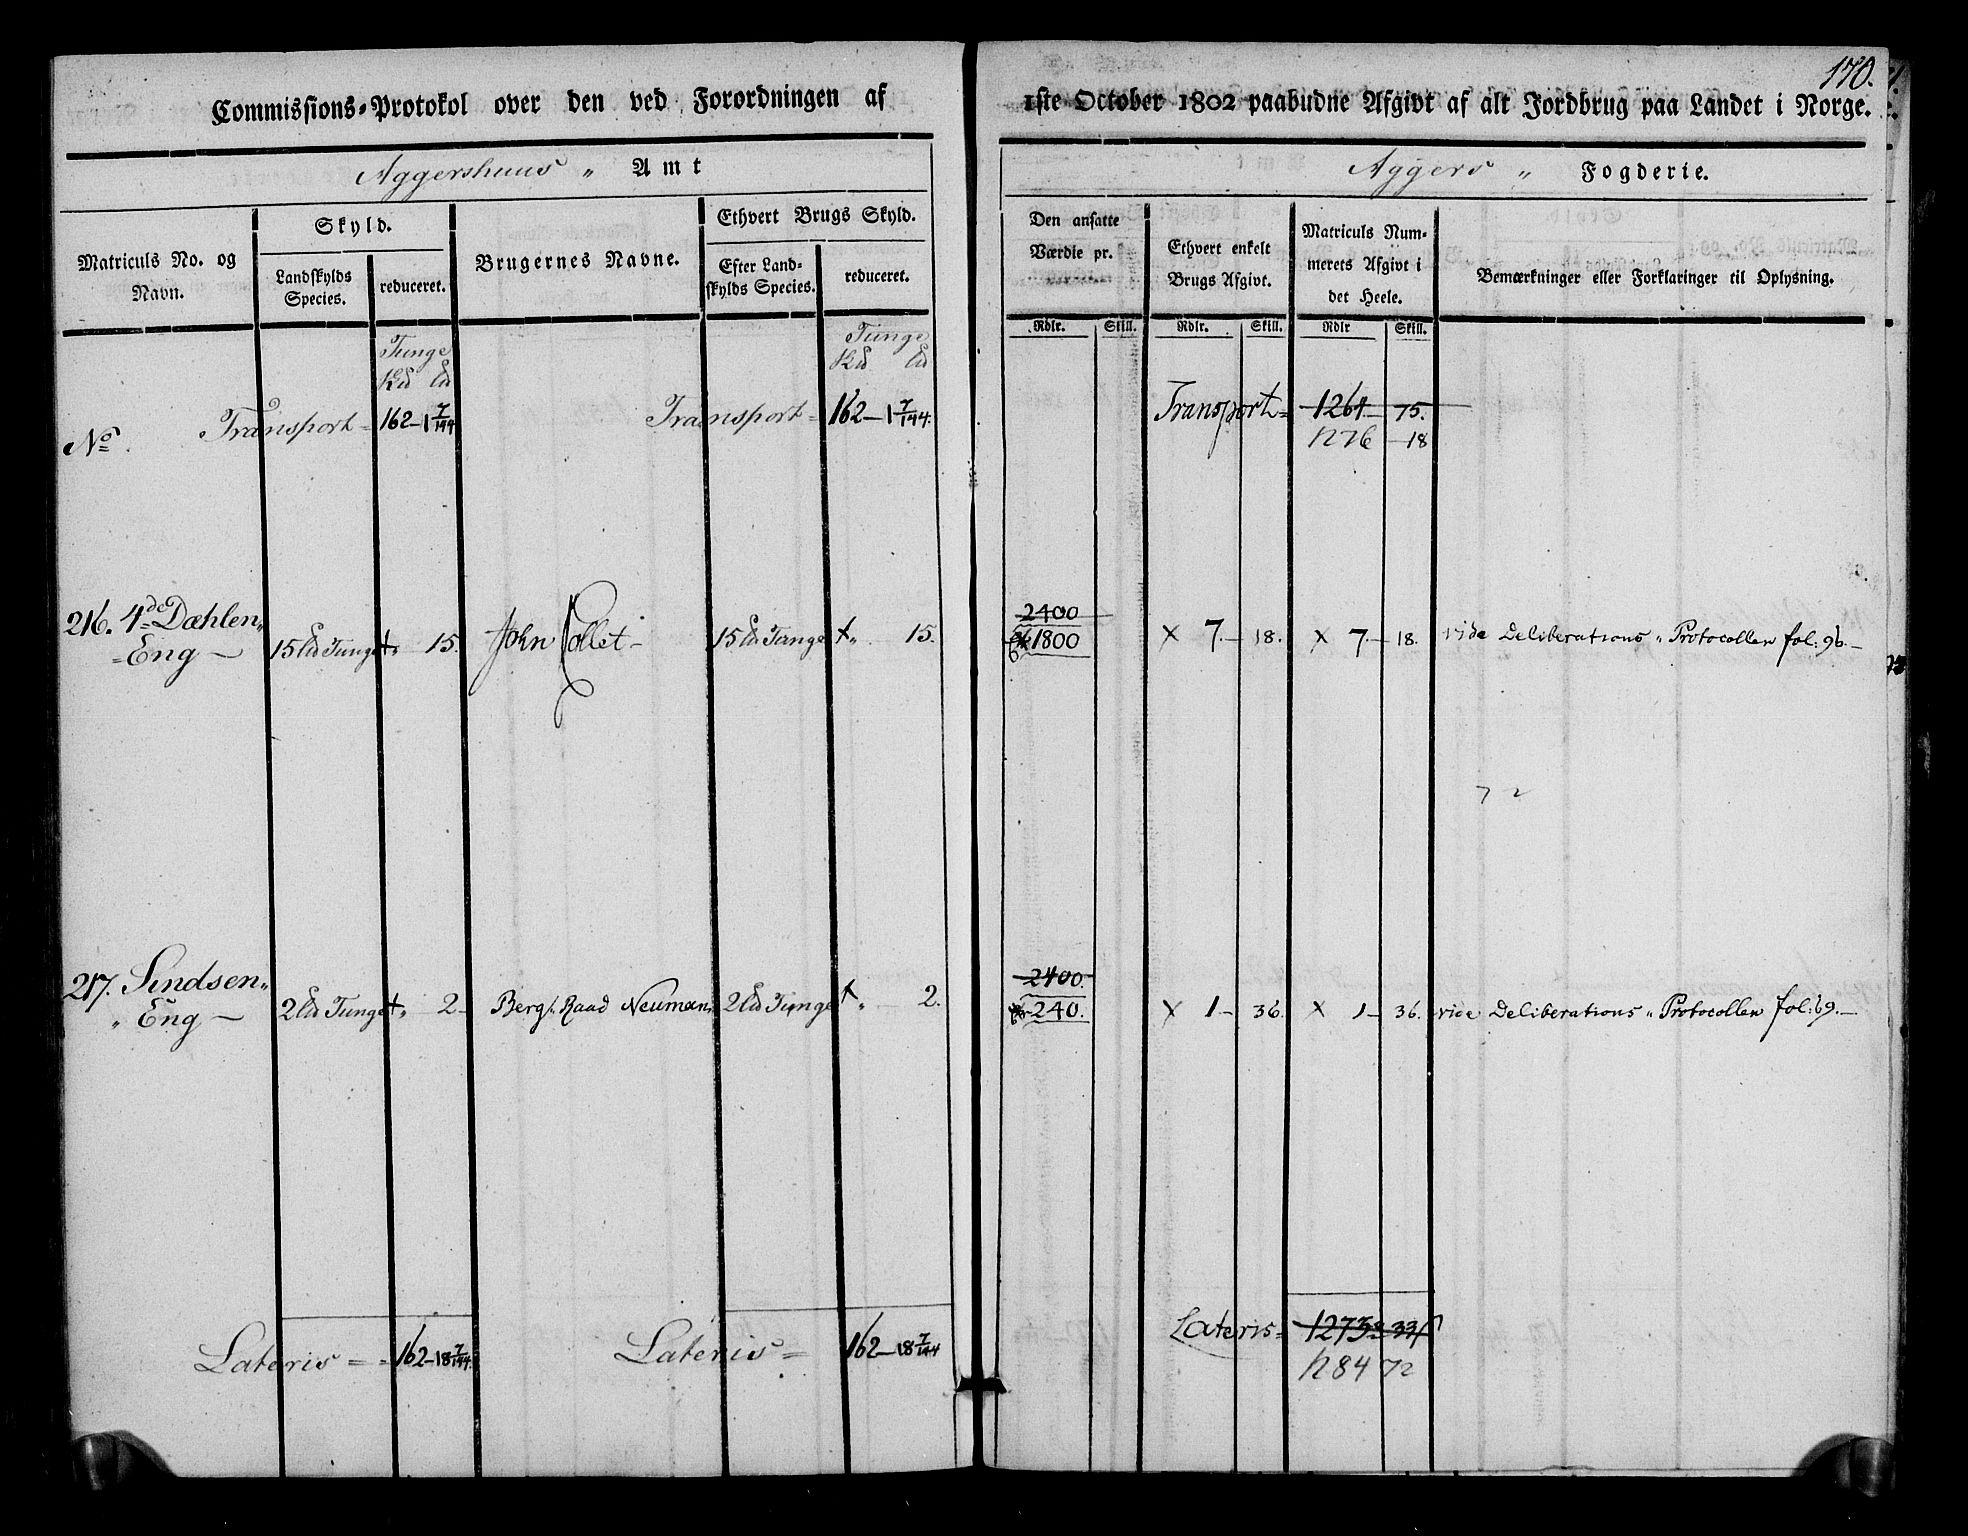 170.
Commissions-Protokol over den ved Forordningen af 1ste October 1802 paabudne Afgivt af alt Jordbrug paa Landet i Norge.
Aggershuus „ Amt
Aggers „ Fogderie.
Matriculs No. og Navn.
Skyld.
Landskylds Species.
reduceret.
Brugernes Navne.
Ethvert Brugs Skyld.
Efter Landskylds Species.
reduceret.
Den ansatte Værdie pr.
Ethvert enkelt Brugs Afgivt.
Matriculs Nummerets Afgivt i det Heele.
Bemærkninger eller Forklaringer til Oplysning.
Rdlr. Skill. Rdlr. Skill. Rdlr Skill.
Tunge
Tunge
No.
Transport = 162 — 1 7/144
Transport = 162 — 1 7/144.
Transport = 1264 — 75.
1276 — 18
216. 4de Dæhlen„
= Eng —
15 Ld Tunge + „ 15.
John Collet —
15 Ld Tunge + „ 15.
2400
1800
× 7. — 18. × 7. — 18.
vide Deliberations „ Protocollen fol: 96. —
7 2
217. Sindsen„
„ Eng —
2 Ld Tunge + „ 2 —
Berg/. Raad Neuman
2 Ld Tunge × „ 2.
2400.
240.
× 1 — 36. × 1 — 36.
vide Deliberations „ Protocollen fol: 69. —
Lateris = = 162 — 18 7/144.
Lateris = 162 — 18 7/144
Lateris = 1273 33
1284 72